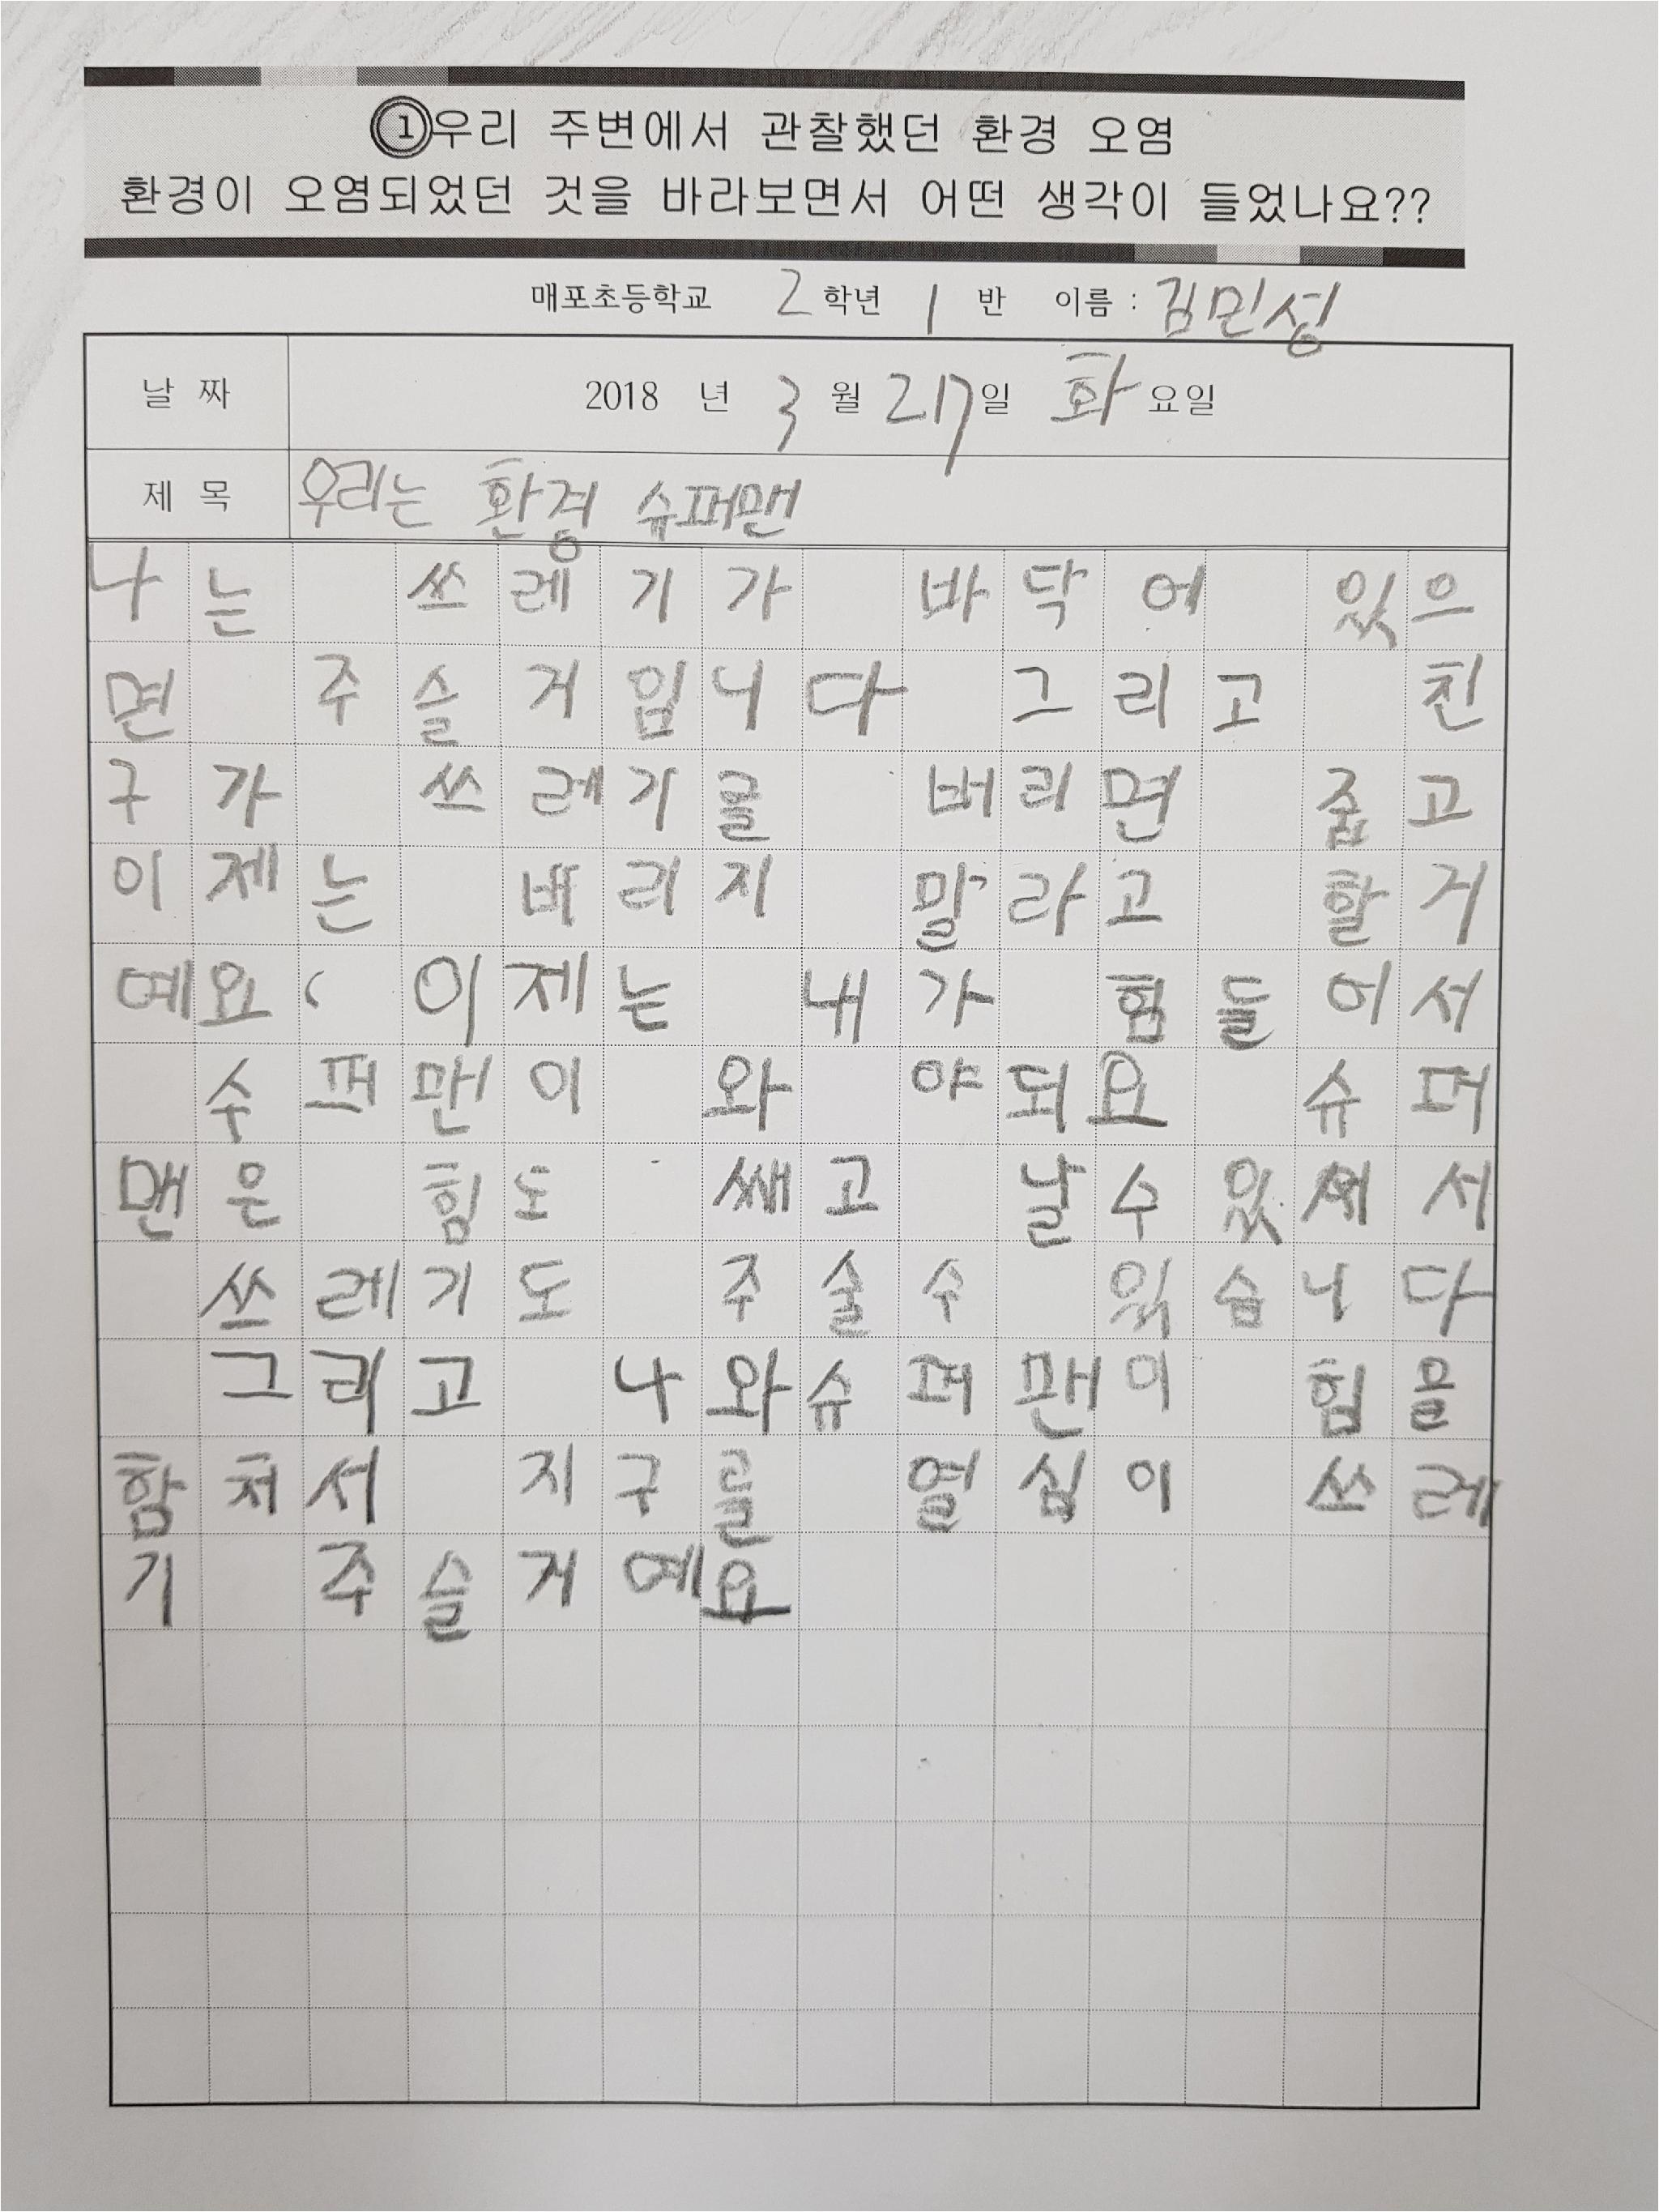 ①우리 주변에서 관찰했던 환경 오염
환경이 오염되었던 것을 바라보면서 어떤 생각이 들었나요??
매포초등학교 2학년 1 반 이름 : 김민성
날 짜 2018 년 3 월 27일 화요일
제 목 우리는 환경 슈퍼맨
나는 쓰레기가 바닥에 있으
면 주슬거입니다 그리고 친
구가 쓰레기를 버리면 줍고
이제는 버리지 말라고 할거
예요. 이제는 내가 힘들어서
수퍼맨이 와 야되요 슈퍼
맨은 힘도 쎄고 날수있어서
쓰레기도 주술수 있슴니다
그리고 나와슈퍼맨이 힘을
함처서 지구를 열심이 쓰레
기 주슬거예요